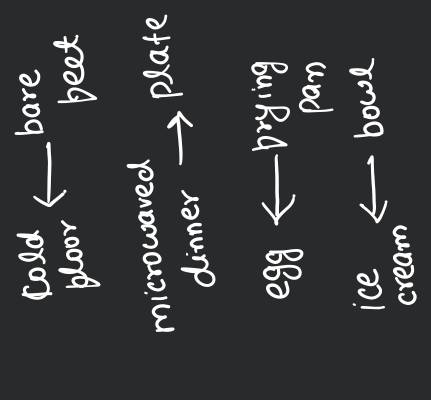 Cold ← bare
floor feet
microwaved → plate
dinner
egg ← frying
pan
ice ← bowl
cream